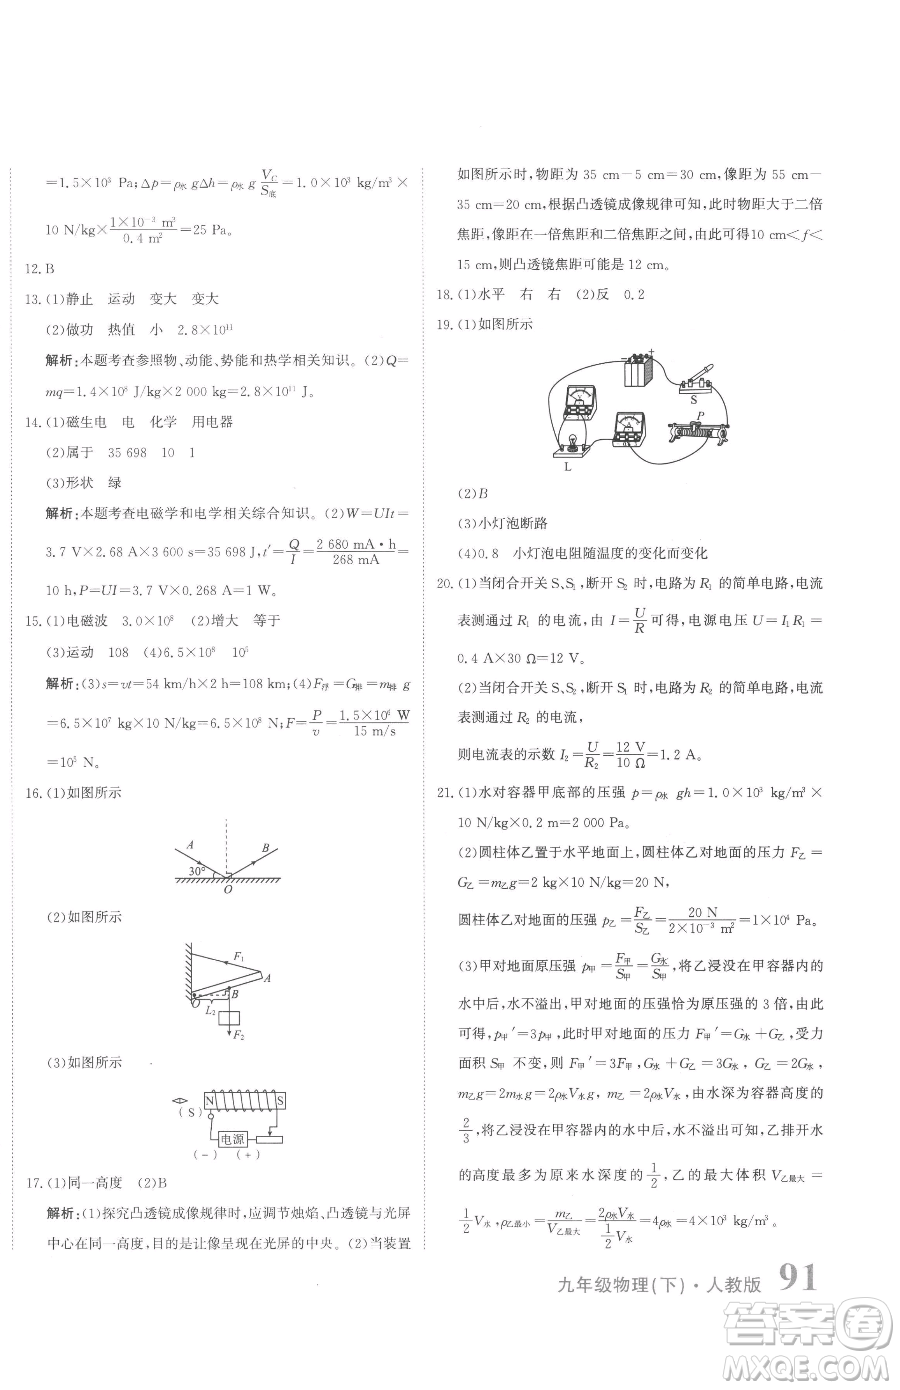 =1.5×10³ Pa;Δp=ρ水 gΔh=ρ水 g V_C/S底=1.0×10³ kg/m³×
10 N/kg×(1×10⁻³ m³)/(0.4 m²)=25 Pa。
12.B
13.(1)静止 运动 变大 变大
(2)做功 热值 小 2.8×10¹¹
解析:本题考查参照物、动能、势能和热学相关知识。(2)Q=
mq=1.4×10⁸ J/kg×2 000 kg=2.8×10¹¹ J。
14.(1)磁生电 电 化学 用电器
(2)属于 35 698 10 1
(3)形状 绿
解析:本题考查电磁学和电学相关综合知识。(2)W=UIt=
3.7 V×2.68 A×3 600 s=35 698 J,t′=Q/I=(2 680 mA·h)/(268 mA)=
10 h,P=UI=3.7 V×0.268 A=1 W。
15.(1)电磁波 3.0×10⁸ (2)增大 等于
(3)运动 108 (4)6.5×10⁸ 10⁵
解析:(3)s=vt=54 km/h×2 h=108 km;(4)F浮=G排=m排 g
=6.5×10⁷ kg×10 N/kg=6.5×10⁸ N;F=P/v=(1.5×10⁶ W)/(15 m/s)
=10⁵ N。
16.(1)如图所示
A B
30°
O
(2)如图所示
F₁
A
B
O
L₂
F₂
(3)如图所示
N S
(S)
电源
(−) (+)
17.(1)同一高度 (2)B
解析:(1)探究凸透镜成像规律时,应调节烛焰、凸透镜与光屏
中心在同一高度,目的是让像呈现在光屏的中央。(2)当装置
如图所示时,物距为 35 cm−5 cm=30 cm,像距为 55 cm−
35 cm=20 cm,根据凸透镜成像规律可知,此时物距大于二倍
焦距,像距在一倍焦距和二倍焦距之间,故可得10 cm<f<
15 cm,则凸透镜焦距可能是 12 cm。
18.(1)水平 右 右 (2)反 0.2
19.(1)如图所示
− +
S
P
V
A
L
(2)B
(3)小灯泡断路
(4)0.8 小灯泡电阻随温度的变化而变化
20.(1)当闭合开关 S、S₁,断开 S₂ 时,电路为 R₁ 的简单电路,电流
表测通过 R₁ 的电流,由 I=U/R可得,电源电压 U=I₁R₁=
0.4 A×30 Ω=12 V。
(2)当闭合开关 S、S₂,断开 S₁ 时,电路为 R₂ 的简单电路,电流
表测通过 R₂ 的电流,
则电流表的示数 I₂=U/R₂=(12 V)/(10 Ω)=1.2 A。
21.(1)水对容器甲底部的压强 p=ρ水 gh=1.0×10³ kg/m³×
10 N/kg×0.2 m=2 000 Pa。
(2)圆柱体乙置于水平地面上,圆柱体乙对地面的压力 F乙=
G乙=m乙g=2 kg×10 N/kg=20 N,
圆柱体乙对地面的压强 p乙=F乙/S乙=(20 N)/(2×10⁻³ m²)=1×10⁴ Pa。
(3)甲对地面原压强 p甲=F甲/S甲=G水/S甲,将乙浸没在甲容器内的
水中后,水不溢出,甲对地面的压强恰为原压强的 3 倍,由此
可得,p甲′=3p甲,此时甲对地面的压力 F甲′=G水+G乙,受力
面积 S甲 不变,则 F甲′=3G水=G水+G乙,G乙=2G水,
m乙g=2m水g=2ρ水V水g,m乙=2ρ水V水,由水深为容器高度的
2/3,乙浸没在甲容器的水中时,水不溢出,可知乙的高度为水
的高度的 1/2,乙的体积最大为水的 1/2,乙的体积 V乙最大=
1/2V水,ρ乙最小=m乙/V乙最大=2ρ水V水/(1/2V水)=4ρ水=4×10³ kg/m³。
九年级物理(下)·人教版 91
答案圈
MXQE.COM